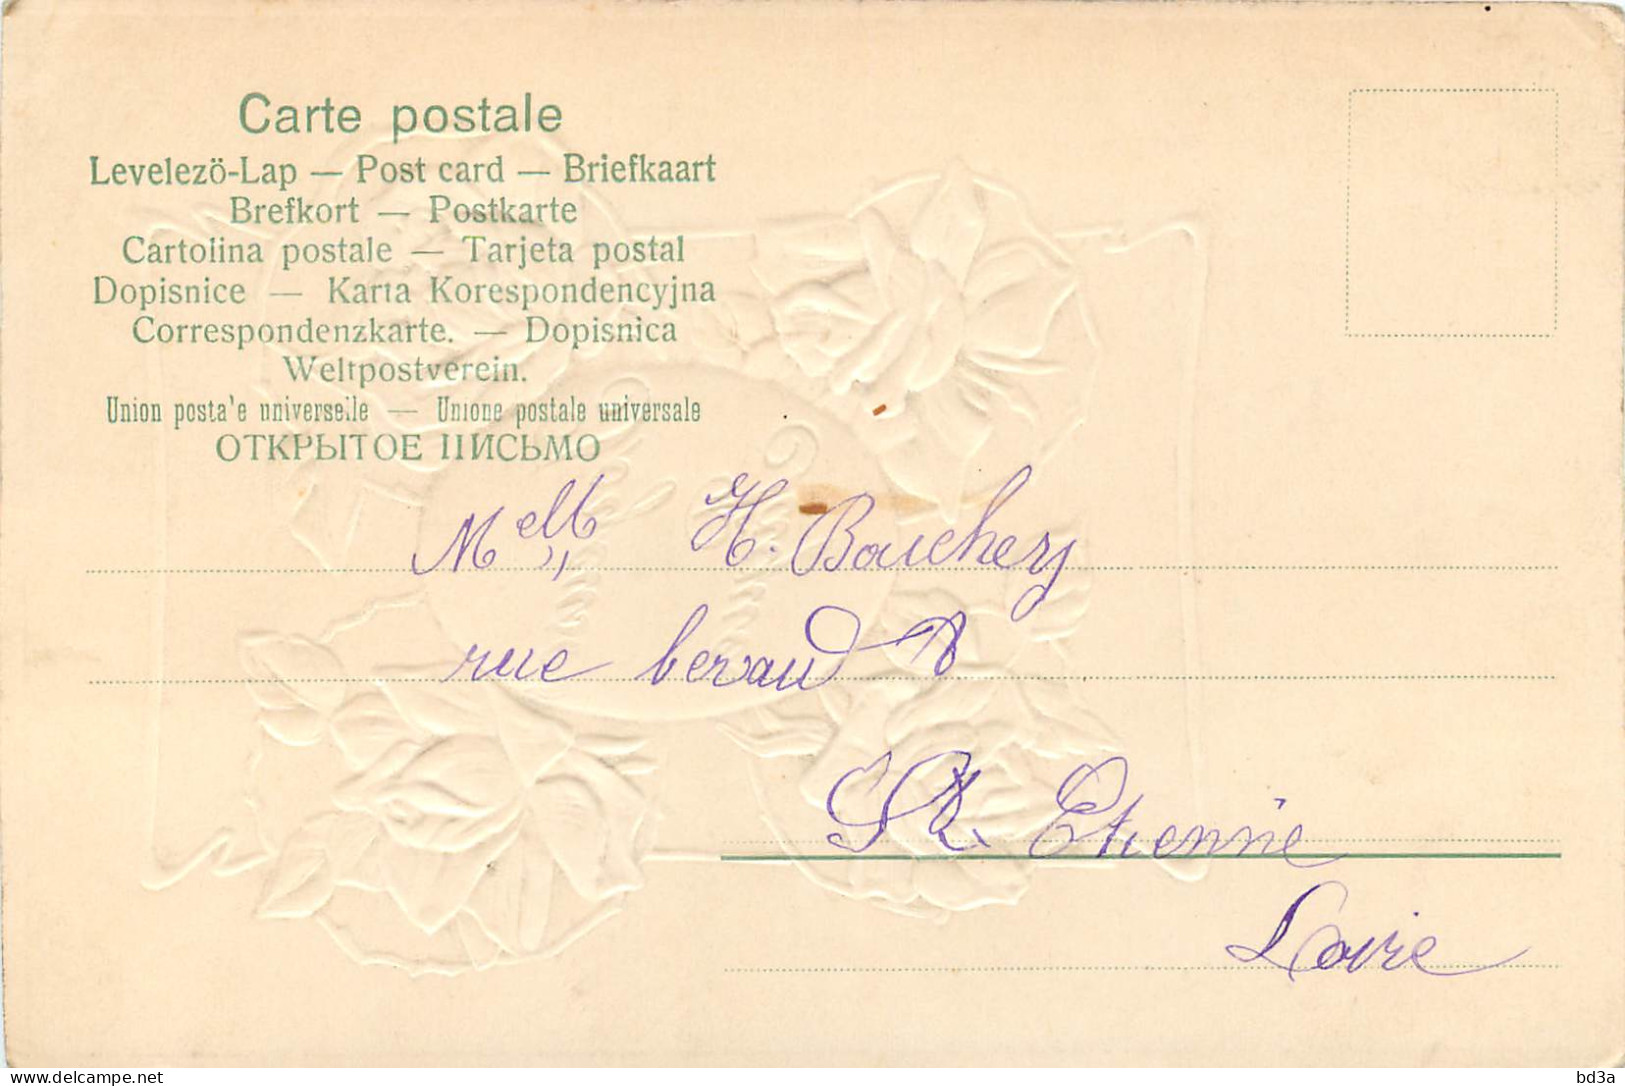 Carte postale
Levelezö-Lap — Post card — Briefkaart
Brefkort — Postkarte
Cartolina postale — Tarjeta postal
Dopisnice — Karta Korespondencyjna
Correspondenzkarte. — Dopisnica
Weltpostverein.
Union posta'e universelle — Unione postale universale
ОТКРЫТОЕ ПИСЬМО
Melle H. Bouchery
rue beraud 8
St Etienne
Loire
delcampe.net
bd3a